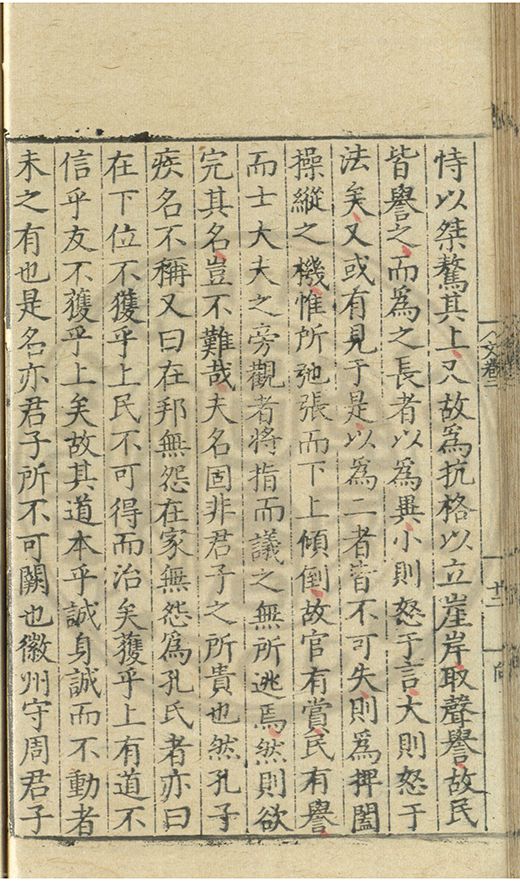 恃以桀驁其上又故為抗格以立崖岸取聲譽故民
皆譽之而為之長者以為異小則怒于言大則怒于
法矣又或有見于是以為二者皆不可失則為捭闔
操縱之機惟所弛張而下上傾倒故官有賞民有譽
而士大夫之旁觀者將指而議之無所逃焉然則欲
完其名豈不難哉夫名固非君子之所貴也然孔子
疾名不稱又曰在邦無怨在家無怨為孔氏者亦曰
在下位不獲乎上民不可得而治矣獲乎上有道不
信乎友不獲乎上矣故其道本乎誠身誠而不動者
未之有也是名亦君子所不可闕也徽州守周君子
文卷二